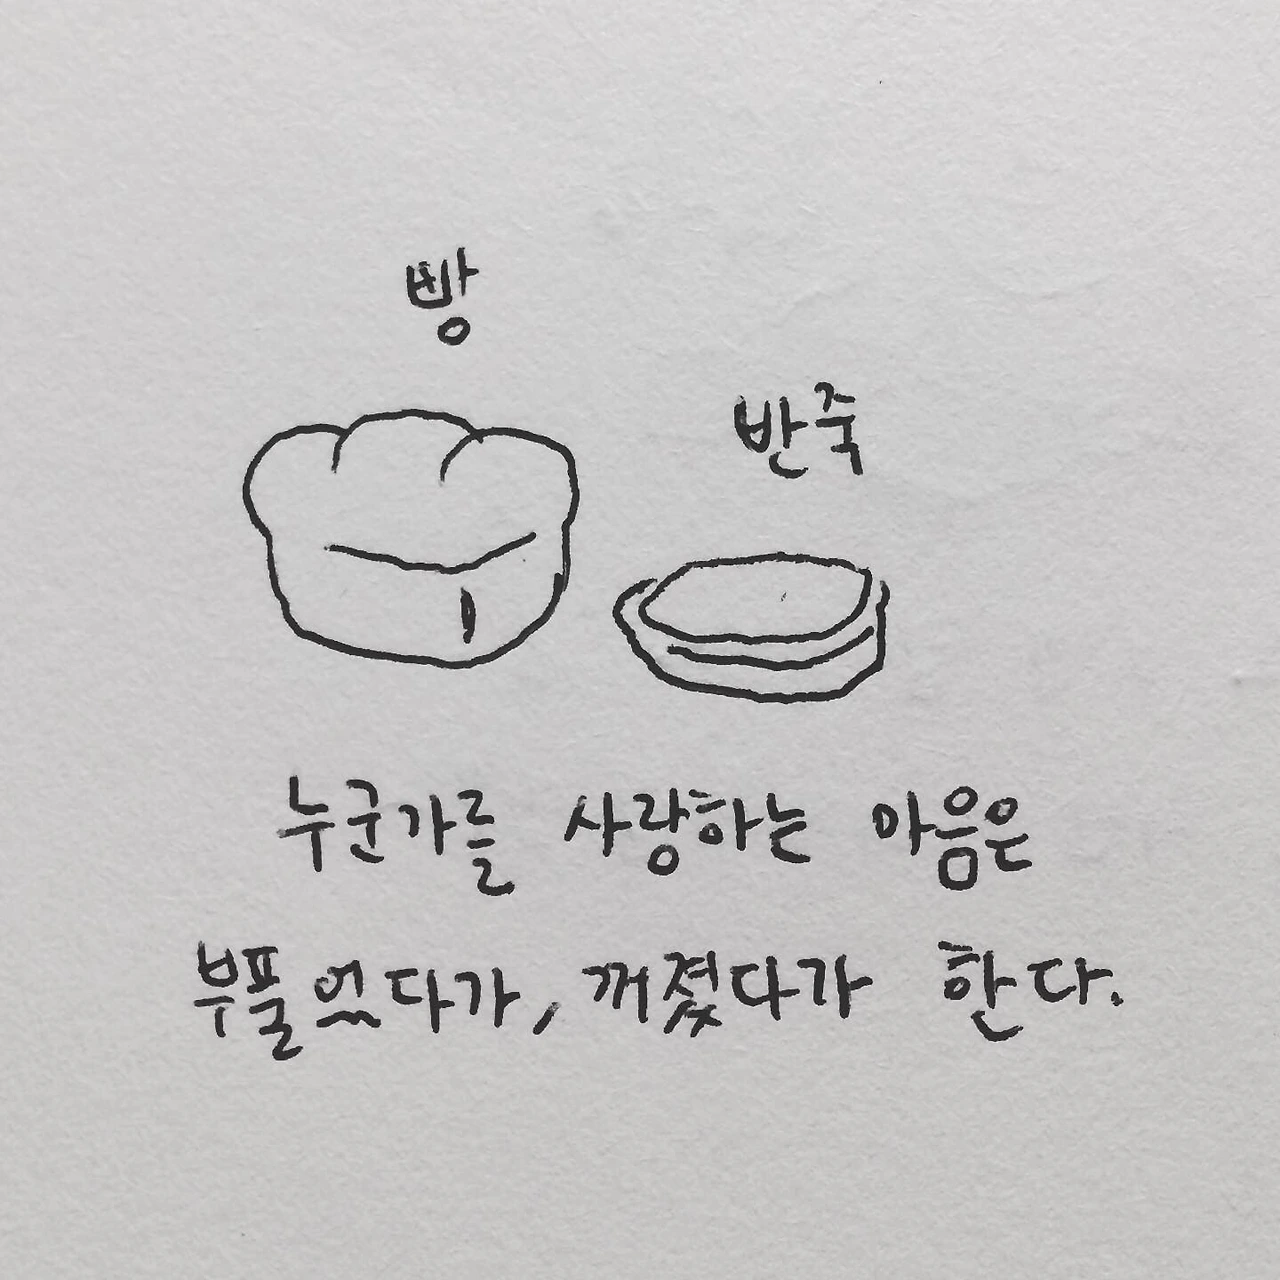 빵
반죽
누군가를 사랑하는 마음은
부풀었다가, 꺼졌다가 한다.